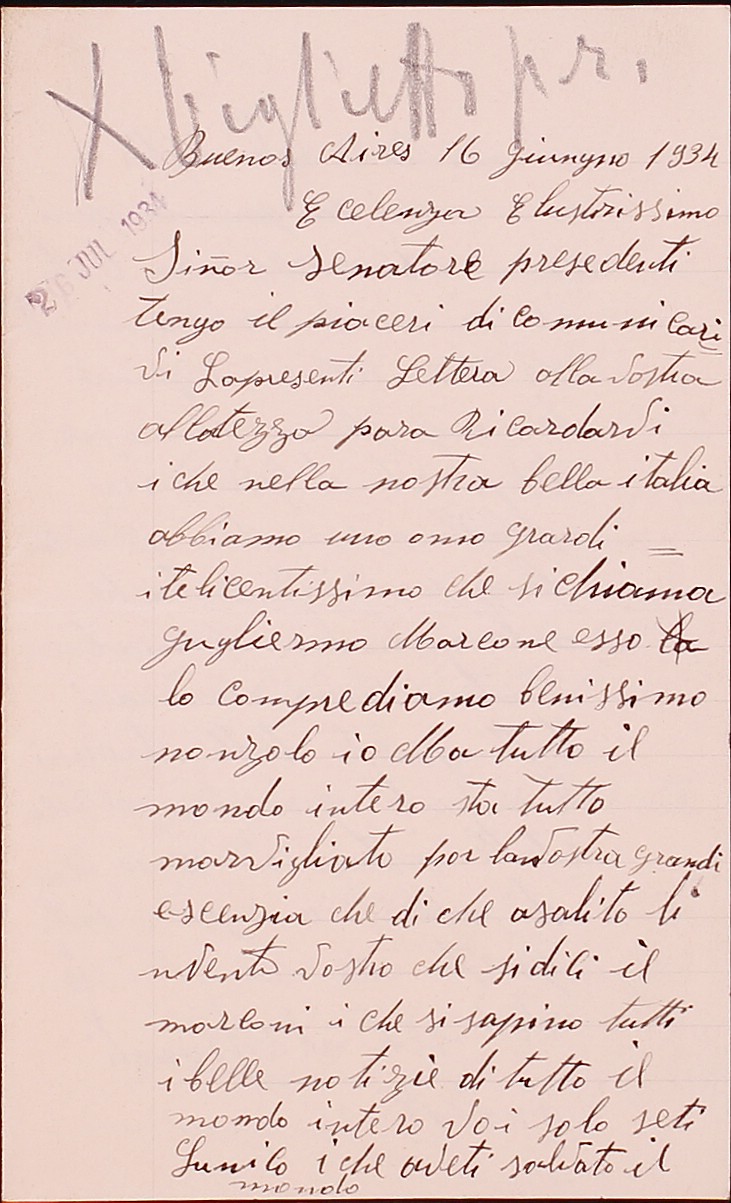 X biglietto pr.
Buenos Aires 16 giungno 1934
26 JUL 1934
Ecelenza Elustrissimo
Siñor Senatore presedenti
tengo il piaceri di comunicari
vi Lapresenti Lettera alla vostra
allatezza para Ricardarvi
i che nella nostra bella italia
abbiamo uno omo grardi
itelicentissimo che si chiama
gugliermo Marcone esso la
lo comprediamo benissimo
nonzolo io Ma tutto il
mondo intero sta tutto
marvigliato por la vostra grandi
escenzia che di che asalito li
nventi vostro che sidici il
marconi i che si sapino tutti
i belle notizie di tutto il
mondo intero voi solo seti
Lunico i che aveti salvato il
mondo